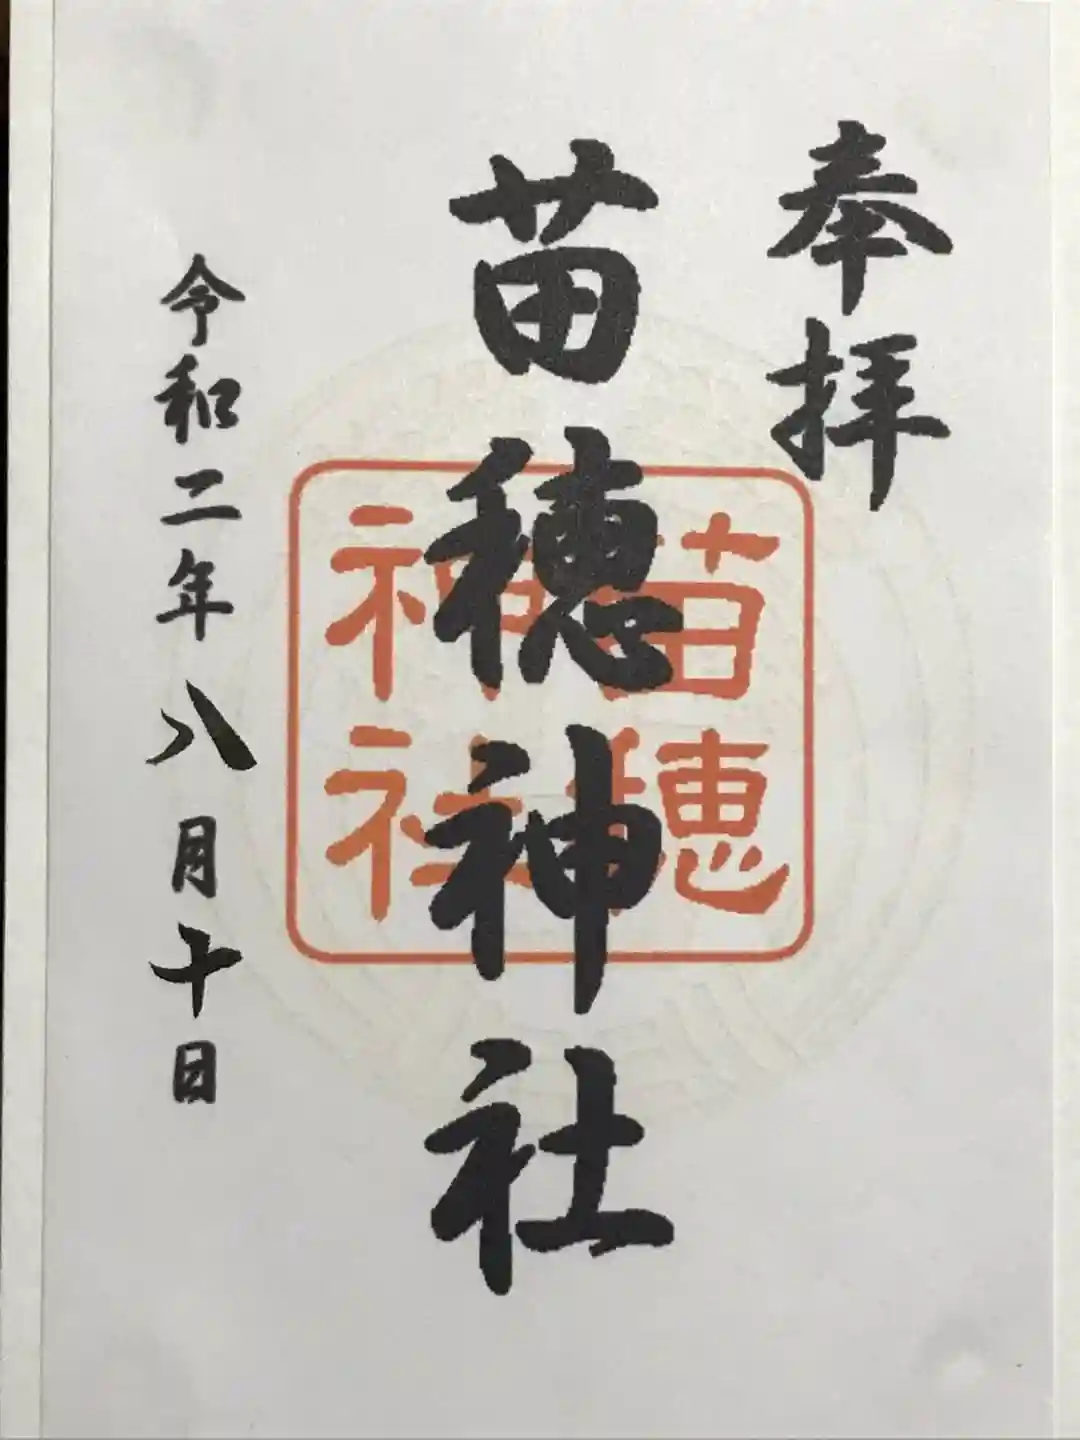 奉拝
苗穂神社
苗穂
神社
令和二年八月十日